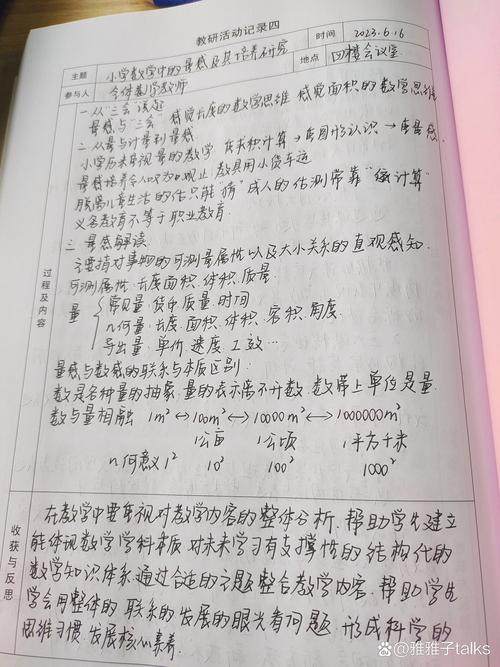 教研活动记录四
主题 小学数学中的量感及其培养研究 时间 2023.6.16
参与人 全体数学教师 地点 四楼会议室
过程及内容
一.从“三会”谈起
量感与“三会” 感觉长度的数学思维 感觉面积的数学思维
二.从量与计量到量感
小学历来重视量的教学 在求积计算→重图形认识→重量感
量感培养令人叹为观止 教具用小货车运
脱离儿童生活的估只能“猜”成人的估测常靠“缩计算”
义务教育不等于职业教育.
三 量感解读
主要指对事物的可测量属性以及大小关系的直观感知.
可测属性:长度 面积.体积.质量.
量
常见量:货币 质量.时间
几何量:长度 面积.体积.容积.角度.
导出量:单价.速度.工效…
量感与数感的联系与本质区别.
数是各种量的抽象.量的表示离不开数.数带上单位是量.
数与量相融 1m²↔100m²↔10000m²↔1000000m²
1公亩 1公顷 1平方千米
几何意义 1² 10² 100² 1000²
收获与反思
在教学中要重视对教学内容的整体分析.帮助学生建立
能体现数学学科本质.对未来学习有支撑性的结构化的
数学知识体系.通过合适的主题整合教学内容.帮助学生
学会用整体的 联系的 发展的眼光看问题.形成科学的
思维习惯.发展核心素养.
@雅雅子talks